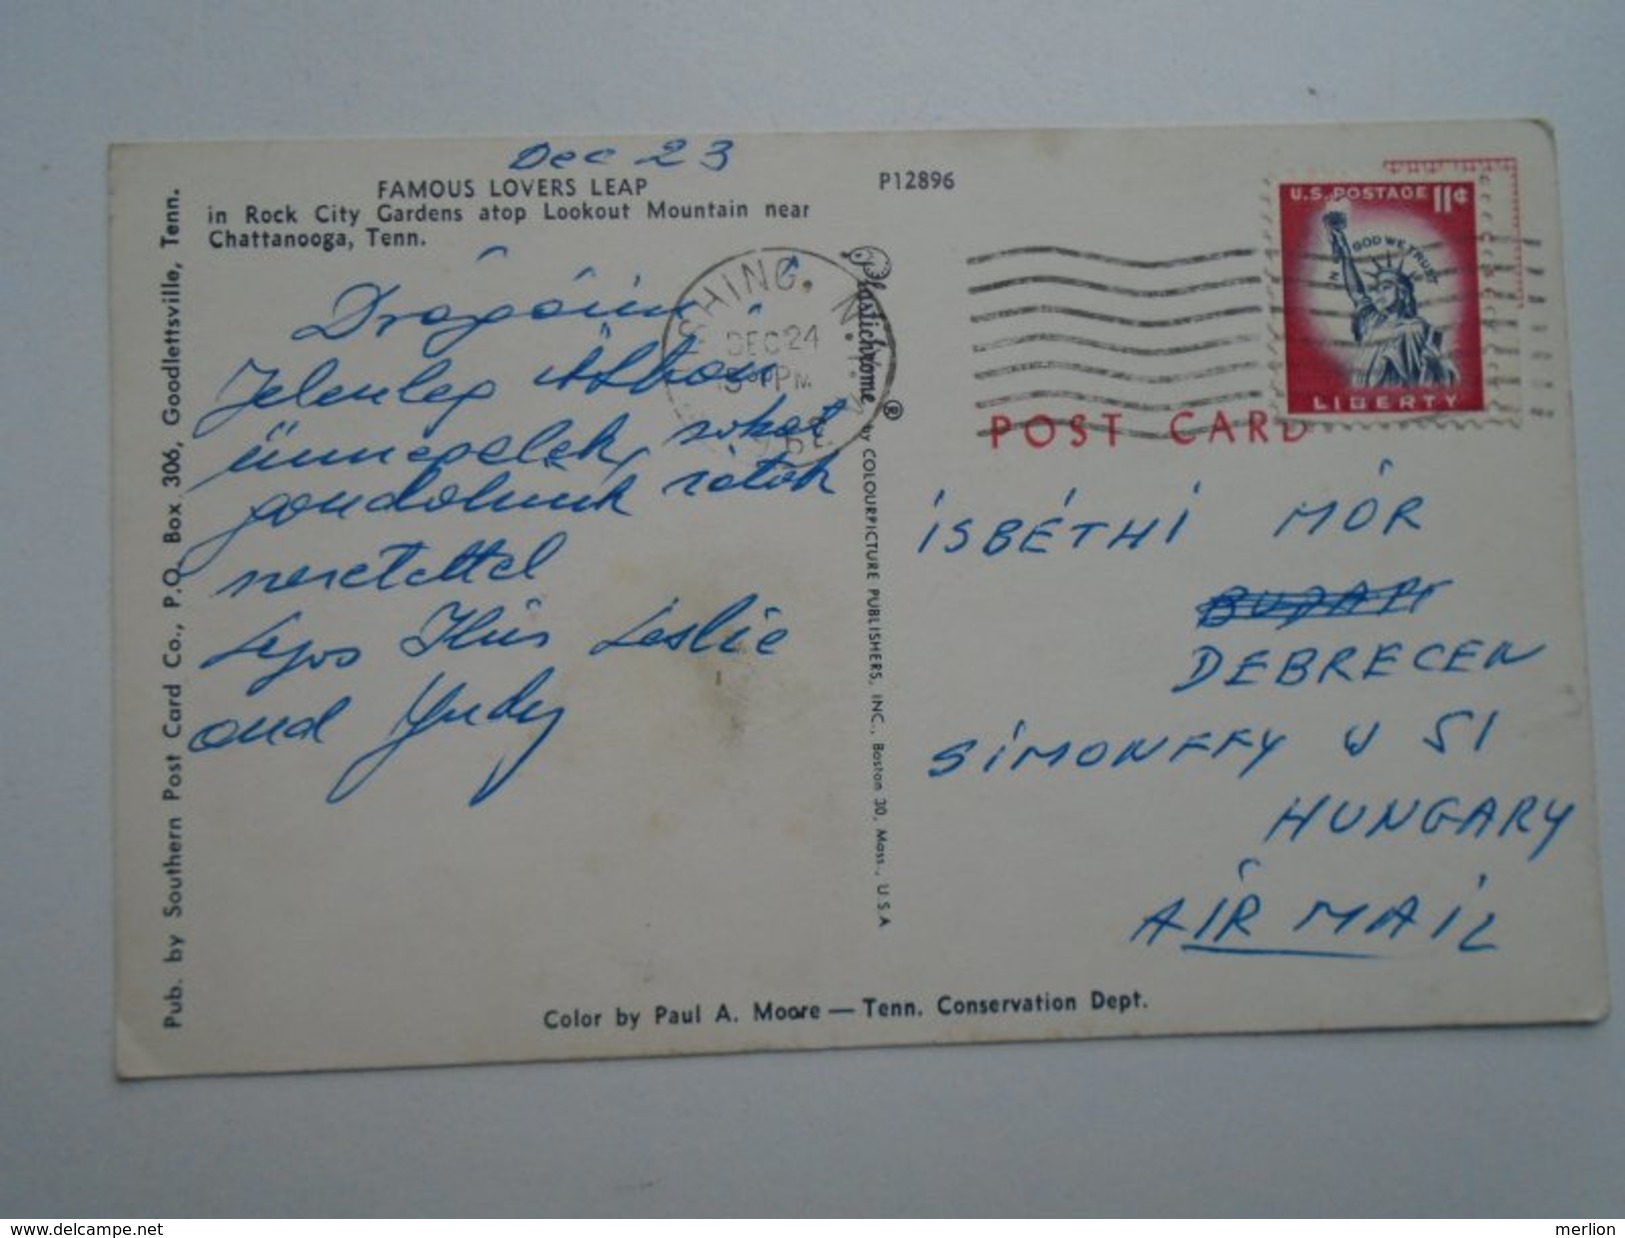 Dec 23
FAMOUS LOVERS LEAP
in Rock City Gardens atop Lookout Mountain near
Chattanooga, Tenn.
P12896
U.S. POSTAGE 11¢
IN GOD WE TRUST
LIBERTY
SHING, N.Y.
DEC 24
PM
POST CARD
Drágáim
Jelenleg itthon
ünnepelek, sokat
gondolunk rátok
szeretettel
Leslie
and Judy
ÍSBÉTHI MÓR
DEBRECEN
SIMONFFY U 51
HUNGARY
AIR MAIL
Pub. by Southern Post Card Co., P.O. Box 306, Goodlettsville, Tenn.
Plastichrome ® by COLOURPICTURE PUBLISHERS, INC., Boston 30, Mass., U.S.A
Color by Paul A. Moore — Tenn. Conservation Dept.
www.delcampe.net
merlion